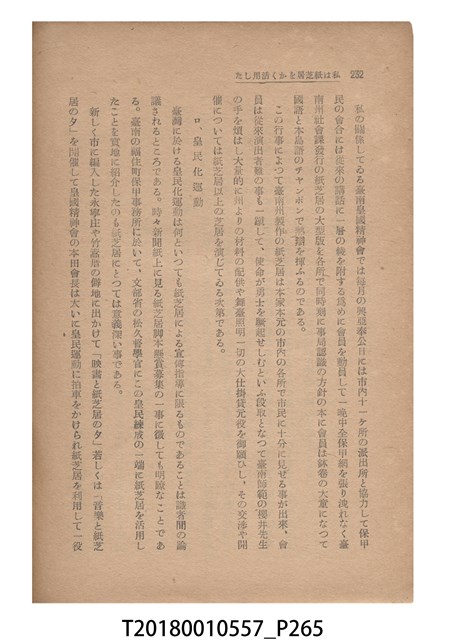 232　私は紙芝居をかく活用した
私の關係してゐる臺南皇國精神會では每月の興亞奉公日には市內十一ケ所の派出所と協力して保甲
民の會合には從來の講話に一層の綾を附する爲めに會員を動員して一晩中全保甲網を張り洩れなく臺
南州社會課發行の紙芝居の大型版を各所で同時刻に事局認識の方針の本に會員は鉢卷の大童になつて
國語と本島語のチャンポンで熱辯を揮ふのである。
この行事によつて臺南州製作の紙芝居は本家本元の市內の各所で市民に十分に見せる事が出來、會
員は從來演出者難の事も一蹴して、使命が勇士を蹶起せしむといふ段取となつて臺南師範の櫻井先生
の手を煩はし大量的に州よりの材料の配供や舞臺照明一切の大仕掛貸元役を御願ひし、その交涉や開
催については紙芝居以上の芝居を演じてゐる次第である。
ロ、皇民化運動
臺灣に於ける皇民化運動は何といつても紙芝居による宣傳指導に限るものであることは識者間の論
議されるところである。時々新聞紙上に見る紙芝居脚本懸賞募集の一事に徵しても明瞭なことであ
る。臺南の福住町保甲事務所に於いて、文部省の松久督學官にこの皇民練成の一端に紙芝居を活用し
たことを實地に紹介したのも紙芝居にとつては意義深い事である。
新しく市に編入した永寧庄や竹篙厝の僻地に出かけて「映畫と紙芝居の夕」若しくは「音樂と紙芝
居の夕」を開催して皇國精神會の本田會長は大いに皇民運動に拍車をかけられ紙芝居を利用して一役
T20180010557_P265